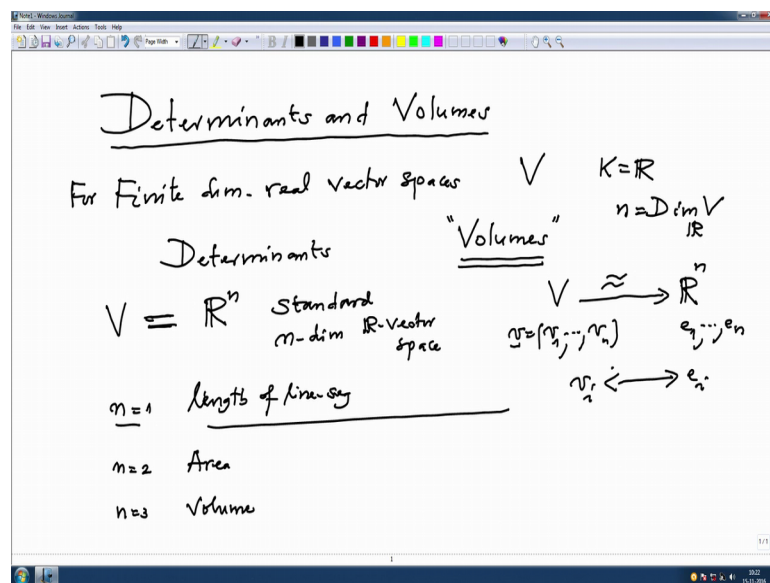 Note1 - Windows Journal
File Edit View Insert Actions Tools Help
Page Width
Determinants and Volumes
For Finite dim. real vector spaces V K=ℝ
n = Dim V
ℝ
Determinants "Volumes"
V = ℝⁿ Standard n-dim ℝ-vector space
V ≈→ ℝⁿ
v=(v₁,...,vₙ) e₁,...,eₙ
vᵢ ↔ eᵢ
n=1 length of line-seg
n=2 Area
n=3 Volume
1/1
1
10:22
15-11-2016